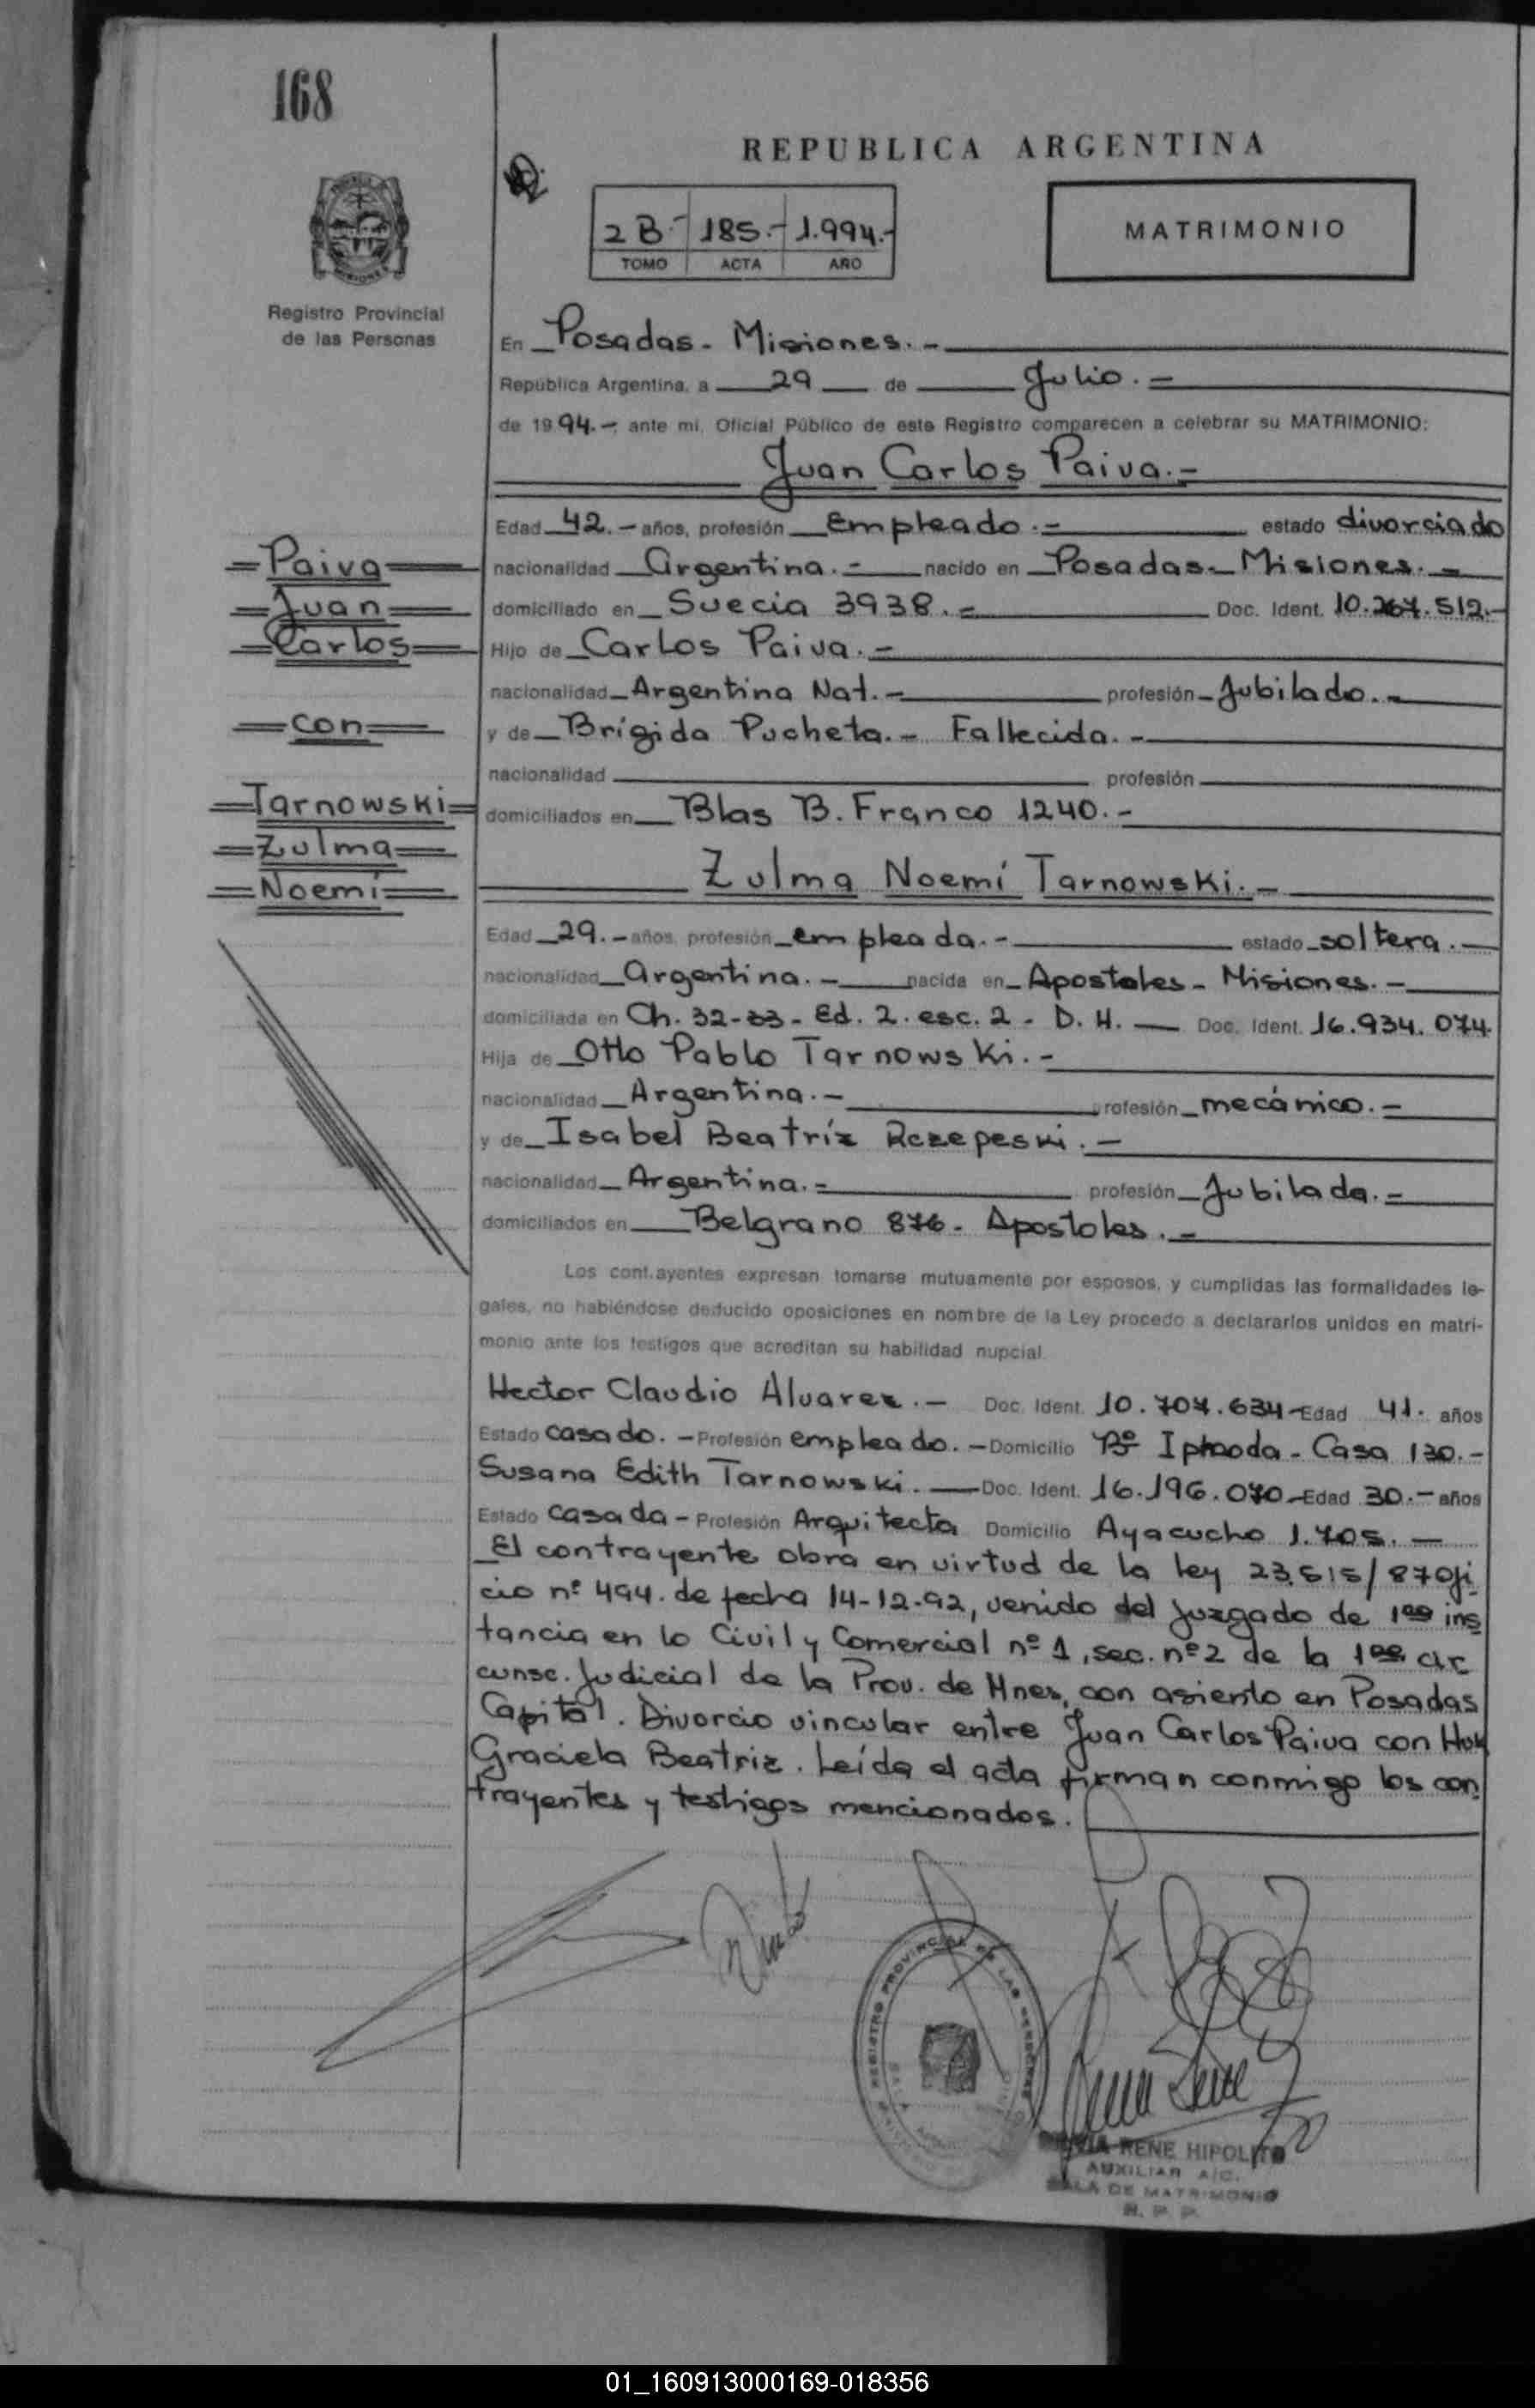 168
REPUBLICA ARGENTINA
2B.- 185.- 1.994.-
TOMO ACTA AÑO
MATRIMONIO
Registro Provincial
de las Personas
En Posadas - Misiones.-
República Argentina, a 29 de Julio.-
de 1994.- ante mi, Oficial Público de este Registro comparecen a celebrar su MATRIMONIO:
Juan Carlos Paiva.-
Edad 42.- años, profesión Empleado.- estado divorciado
Paiva
nacionalidad Argentina.- nacido en Posadas- Misiones.-
Juan
domiciliado en Suecia 3938.- Doc. Ident. 10.267.512.-
Carlos
Hijo de Carlos Paiva.-
nacionalidad Argentina Nat.- profesión Jubilado.-
con
y de Brígida Pucheta.- Fallecida.-
nacionalidad profesión
Tarnowski
domiciliados en Blas B. Franco 1240.-
Zulma
Noemí
Zulma Noemí Tarnowski.-
Edad 29.- años, profesión empleada.- estado soltera.-
nacionalidad Argentina.- nacida en Apostoles- Misiones.-
domiciliada en Ch. 32-33- Ed. 2. esc. 2 - D. H.- Doc. Ident. 16.934.074.
Hija de Otto Pablo Tarnowski.-
nacionalidad Argentina.- profesión mecánico.-
y de Isabel Beatríz Rezepeski.-
nacionalidad Argentina.- profesión Jubilada.-
domiciliados en Belgrano 876- Apostoles.-
Los contrayentes expresan tomarse mutuamente por esposos, y cumplidas las formalidades le-
gales, no habiéndose deducido oposiciones en nombre de la Ley procedo a declararlos unidos en matri-
monio ante los testigos que acreditan su habilidad nupcial.
Hector Claudio Alvarez.- Doc. Ident. 10.707.634- Edad 41. años
Estado casado.- Profesión empleado.- Domicilio Bº - Casa 130.-
Susana Edith Tarnowski.- Doc. Ident. 16.196.070- Edad 30.- años
Estado casada- Profesión Arquitecta Domicilio Ayacucho 1.705.-
El contrayente obra en virtud de la ley 23.515/87 ofi
cio nº 494. de fecha 14-12-92, venido del juzgado de 1ra ins
tancia en lo Civil y Comercial nº 1, sec. nº 2 de la 1ra cir
cunsc. Judicial de la Prov. de Mnes, con asiento en Posadas
Capital. Divorcio vincular entre Juan Carlos Paiva con
Graciela Beatriz. Leída el acta firman conmigo los con
trayentes y testigos mencionados.
REGISTRO PROVINCIAL DE LAS PERSONAS
RENE HIPOLITO
AUXILIAR A/C.
SALA DE MATRIMONIO
R. P. P.
01_160913000169-018356